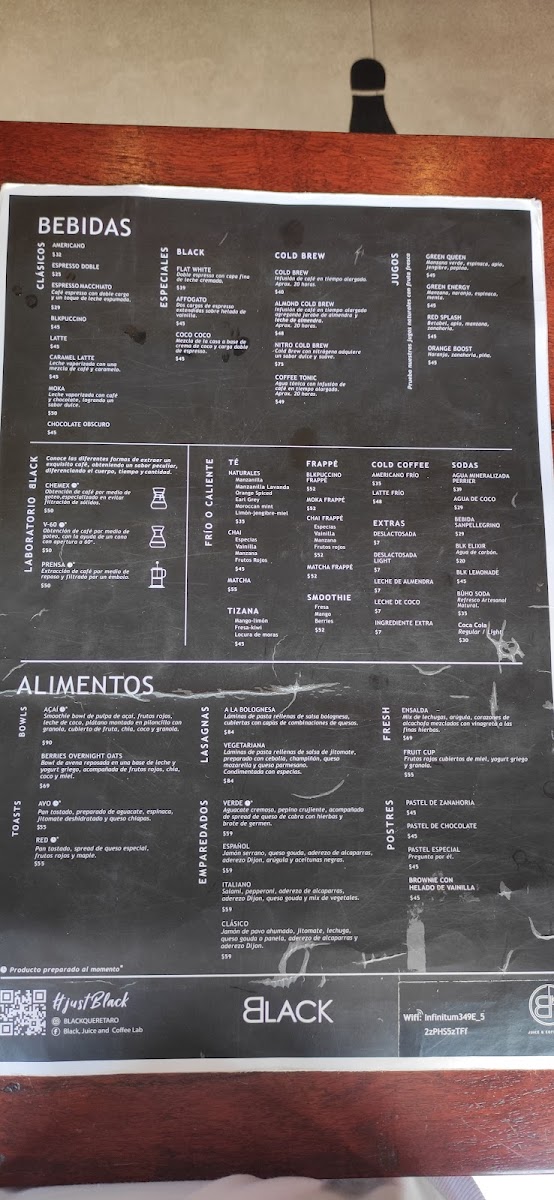 BEBIDAS
CLÁSICOS
AMERICANO
$32
ESPRESSO DOBLE
$35
ESPRESSO MACCHIATO
Café espresso con doble carga
y un toque de leche espumada.
$39
BLKPUCCINO
$45
LATTE
$45
CARAMEL LATTE
Leche vaporizada con una
mezcla de café y caramelo.
$45
MOKA
Leche vaporizada con café
y chocolate, logrando un
sabor dulce.
$50
CHOCOLATE OBSCURO
$45
ESPECIALES
BLACK
FLAT WHITE
Doble espresso con capa fina
de leche cremado.
$39
AFFOGATO
Dos cargas de espresso
extendidas sobre helado de
vainilla.
$45
COCO COCO
Mezcla de la casa a base de
crema de coco y carga doble
de espresso.
$45
COLD BREW
COLD BREW
Infusión de café en tiempo alargado.
Aprox. 20 horas.
$48
ALMOND COLD BREW
Infusión de café en tiempo alargado
agregando jarabe de almendra y
leche de almendra.
Aprox. 20 horas.
$48
NITRO COLD BREW
Cold Brew con nitrógeno adquiere
un sabor dulce y suave.
$75
COFFEE TONIC
Agua tónica con infusión de
café en tiempo alargado.
Aprox. 20 horas.
$49
JUGOS
Prueba nuestros jugos naturales con fruta fresca
GREEN QUEEN
Manzana verde, espinaca, apio,
jengibre, pepino.
$45
GREEN ENERGY
Manzana, naranja, espinaca,
menta.
$45
RED SPLASH
Betabel, apio, manzana,
zanahoria.
$45
ORANGE BOOST
Naranja, zanahoria, piña.
$45
LABORATORIO BLACK
Conoce las diferentes formas de extraer un
exquisito café, obteniendo un sabor peculiar,
diferenciando el cuerpo, tiempo y cantidad.
CHEMEX
Obtención de café por medio de
goteo, especializada en evitar
filtración de sólidos.
$50
V-60
Obtención de café por medio de
goteo, con la ayuda de un cono
con apertura a 60°.
$50
PRENSA
Extracción de café por medio de
reposo y filtrado por un émbolo.
$50
FRÍO O CALIENTE
TÉ
NATURALES
Manzanilla
Manzanilla Lavanda
Orange Spiced
Earl Grey
Moroccan mint
Limón-jengibre-miel
$35
CHAI
Especias
Vainilla
Manzana
Frutos Rojos
$45
MATCHA
$55
TIZANA
Mango-limón
Fresa-kiwi
Locura de moras
$45
FRAPPÉ
BLKPUCCINO
FRAPPÉ
$52
MOKA FRAPPÉ
$52
CHAI FRAPPÉ
Especias
Vainilla
Manzana
Frutos rojos
$52
MATCHA FRAPPÉ
$52
SMOOTHIE
Fresa
Mango
Berries
$52
COLD COFFEE
AMERICANO FRÍO
$35
LATTE FRÍO
$48
EXTRAS
DESLACTOSADA
$7
DESLACTOSADA
LIGHT
$7
LECHE DE ALMENDRA
$7
LECHE DE COCO
$7
INGREDIENTE EXTRA
$7
SODAS
AGUA MINERALIZADA
PERRIER
$39
AGUA DE COCO
$29
BEBIDA
SANPELLEGRINO
$29
BLK ELIXIR
Agua de carbón.
$20
BLK LEMONADE
$45
BÚHO SODA
Refresco Artesanal
Natural.
$35
Coca Cola
Regular / Light
$30
ALIMENTOS
BOWLS
AÇAÍ
Smoothie bowl de pulpa de açaí, frutos rojos,
leche de coco, plátano montado en piloncillo con
granola, cubierto de fruta, chía, coco y granola.
$90
BERRIES OVERNIGHT OATS
Bowl de avena reposada en una base de leche y
yogurt griego, acompañada de frutos rojos, chía,
coco y miel.
$69
TOASTS
AVO
Pan tostado, preparado de aguacate, espinaca,
jitomate deshidratado y queso chiapas.
$55
RED
Pan tostado, spread de queso especial,
frutos rojos y maple.
$55
LASAGNAS
A LA BOLOGNESA
Láminas de pasta rellenas de salsa bolognesa,
cubiertas con capas de combinaciones de quesos.
$84
VEGETARIANA
Láminas de pasta rellenas de salsa de jitomate,
preparado con cebolla, champiñón, queso
mozarella y queso parmesano.
Condimentada con especias.
$84
EMPAREDADOS
VERDE
Aguacate cremoso, pepino crujiente, acompañado
de spread de queso de cabra con hierbas y
brote de germen.
$59
ESPAÑOL
Jamón serrano, queso gouda, aderezo de alcaparras,
aderezo Dijon, arúgula y aceitunas negras.
$59
ITALIANO
Salami, pepperoni, aderezo de alcaparras,
aderezo Dijon, queso gouda y mix de vegetales.
$59
CLÁSICO
Jamón de pavo ahumado, jitomate, lechuga,
queso gouda o panela, aderezo de alcaparras y
aderezo Dijon.
$59
FRESH
ENSALDA
Mix de lechugas, arúgula, corazones de
alcachofa mezclados con vinagreta a las
finas hierbas.
$69
FRUIT CUP
Frutos rojos cubiertos de miel, yogurt griego
y granola.
$55
POSTRES
PASTEL DE ZANAHORIA
$45
PASTEL DE CHOCOLATE
$45
PASTEL ESPECIAL
Pregunta por él.
$45
BROWNIE CON
HELADO DE VAINILLA
$45
Producto preparado al momento*
#justBlack
BLACKQUERETARO
Black, Juice and Coffee Lab
BLACK
Wifi: Infinitum349E_5
2zPHS5zTFf